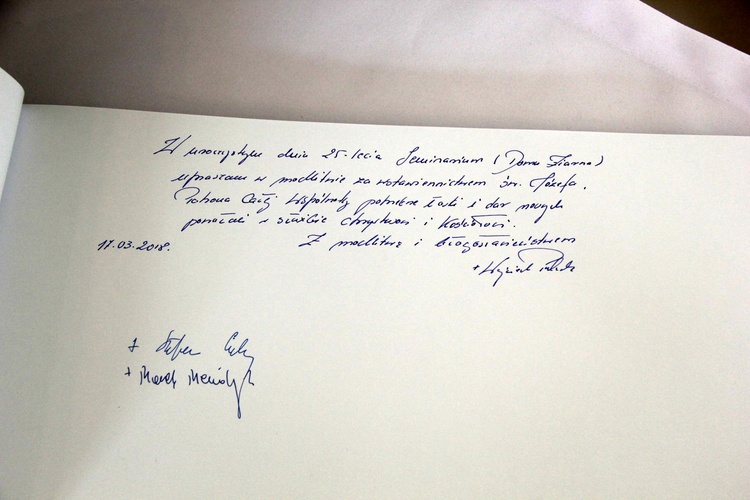 W uroczystym dniu 25-lecia Seminarium (Domu Ziarna)
upraszam w modlitwie za wstawiennictwem św. Józefa,
Patrona Całej Wspólnoty potrzebne łaski i dar nowych
powołań w służbie Chrystusowi i Kościołowi.
17.03.2018. Z modlitwą i błogosławieństwem
+ Wojciech Polak
+ Stefan
+ Marek Mendyk